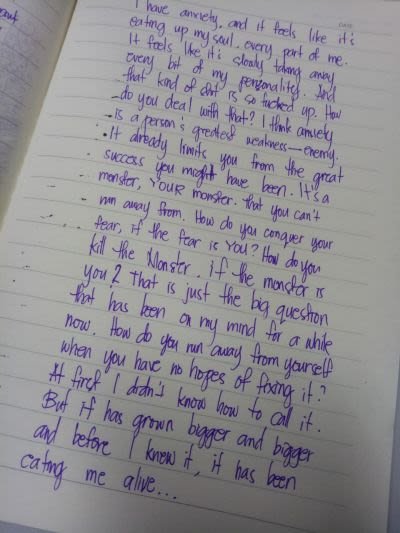 I have anxiety, and it feels like it's
eating up my soul, every part of me.
It feels like it's slowly taking away
every bit of my personality. And
that kind of shit is so fucked up. How
do you deal with that? I think anxiety
is a person's greatest weakness—enemy.
It already limits you from the great
success you might have been. It's a
monster, YOUR monster. that you can't
run away from. How do you conquer your
fear, if the fear is YOU? How do you
kill the Monster, if the monster is
you? That is just the big question
that has been on my mind for a while
now. How do you run away from yourself
when you have no hopes of fixing it?
At first I didn't know how to call it.
But it has grown bigger and bigger
and before I knew it, it has been
eating me alive...